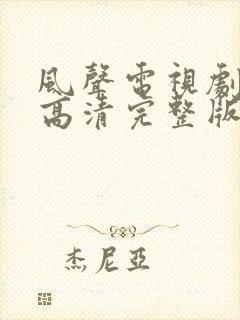 風聲電視劇
高清完整版
杰尼亞